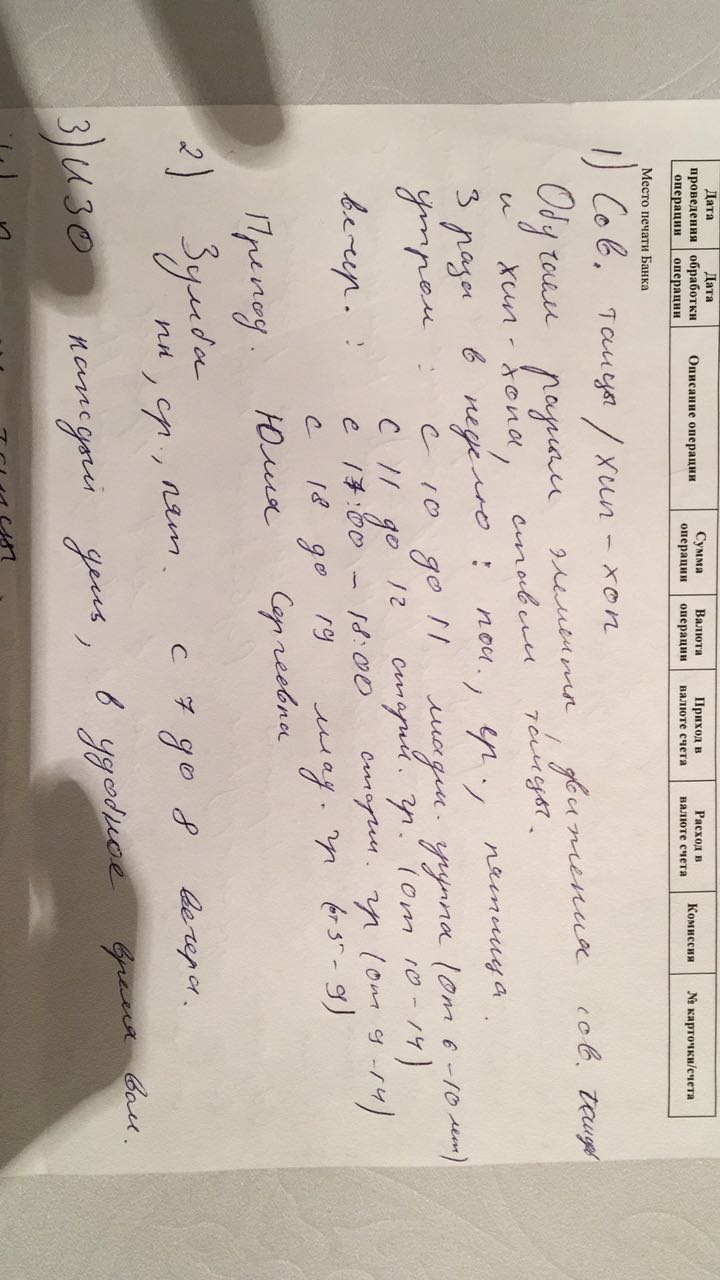 Дата проведения операции
Дата обработки операции
Описание операции
Сумма операции
Валюта операции
Приход в валюте счета
Расход в валюте счета
Комиссия
№ карточки/счета
Место печати Банка
1) Сов. танцы / хип-хоп
Обучаем разным элементы, движения сов. танцы
и хип-хопа, ставим танцы.
3 раза в неделю: пон., ср., пятница.
утром: с 10 до 11 младш. группа (от 6-10 лет)
с 11 до 12 старш. гр. (от 10-14)
вечер.: с 17:00 - 18:00 старш. гр (от 9-14)
с 18 до 19 млад. гр (от 5-9)
Препод. Юлия Сергеевна
2) Зумба
пн, ср., пят. с 7 до 8 вечера.
3) ИЗО каждый день, в удобное время вам.
танцы.